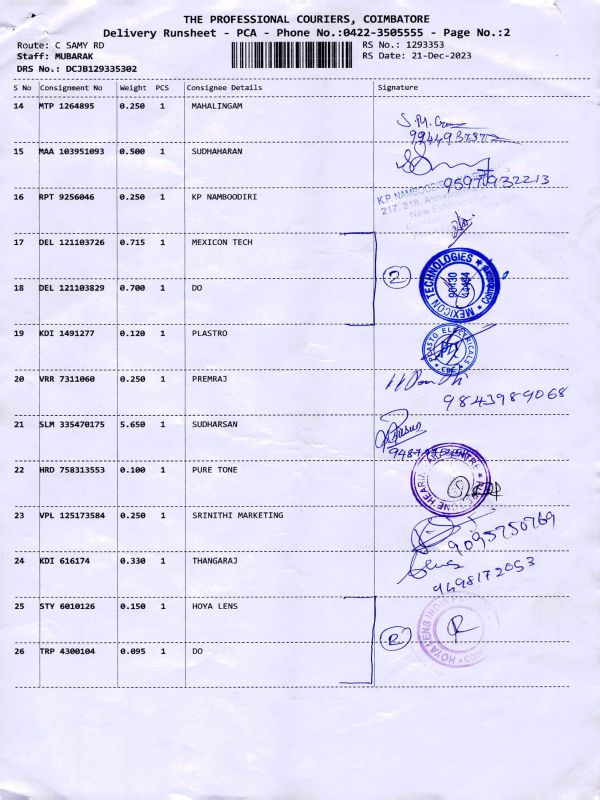 THE PROFESSIONAL COURIERS, COIMBATORE
Delivery Runsheet - PCA - Phone No.:0422-3505555 - Page No.:2
Route: C SAMY RD
RS No.: 1293353
Staff: MUBARAK
RS Date: 21-Dec-2023
DRS No.: DCJB129335302
S No Consignment No Weight PCS Consignee Details Signature
14 MTP 1264895 0.250 1 MAHALINGAM
15 MAA 103951093 0.500 1 SUDHAHARAN
16 RPT 9256046 0.250 1 KP NAMBOODIRI
K.P. NAMBOODIRI
217, 218,
17 DEL 121103726 0.715 1 MEXICON TECH
2
MEXICON TECHNOLOGIES
18 DEL 121103829 0.700 1 DO
19 KDI 1491277 0.120 1 PLASTRO
PLASTO ELECTRICALS
20 VRR 7311060 0.250 1 PREMRAJ
9843989068
21 SLM 335470175 5.650 1 SUDHARSAN
22 HRD 758313553 0.100 1 PURE TONE
23 VPL 125173584 0.250 1 SRINITHI MARKETING
9095750769
24 KDI 616174 0.330 1 THANGARAJ
9498172053
25 STY 6010126 0.150 1 HOYA LENS
HOYA LENS INDIA
26 TRP 4300104 0.095 1 DO